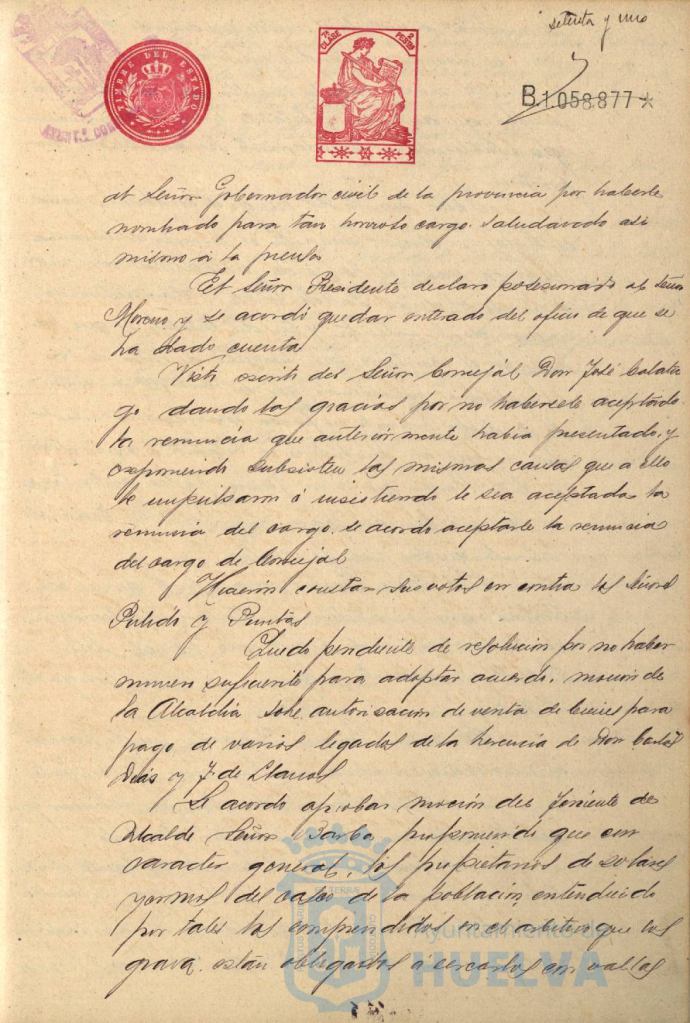 setenta y uno
TIMBRE DEL ESTADO
7ª CLASE 2 PESETAS
B.1.058.877
al Señor Gobernador civil de la provincia por haberle
nombrado para tan honroso cargo. saludando asi
mismo á la prensa
El Señor Presidente declaro posesionado al Señor
Moreno y se acordó quedar enterado del oficio de que se
ha dado cuenta
Visto escrito del Señor Concejál Don José Calata
go dando las gracias por no habersele aceptado
la renuncia que anteriormente habia presentado, y
exponiendo subsisten las mismas causas que a ello
le impulsaron é insistiendo le sea aceptada la
renuncia del cargo. se acordo aceptarle la renuncia
del cargo de Concejál
Hicieron constar sus votos en contra los Señores
Pulido y Puntas
Quedo pendiente de resolucion por no haber
numero suficiente para adoptar acuerdo, mocion de
la Alcaldia sobre autorizacion de venta de bienes para
pago de varios legados de la herencia de Don Carlos
Dias y F. de Llanos
Se acordo aprobar mocion del Teniente de
Alcalde Señor Barba proponiendo que con
caracter general, los propietarios de solares
yermos del casco de la poblacion, entendiendo
por tales los comprendidos en el arbitrio que los
grava. están obligados á cercarlos con vallas
Ayuntamiento de
HUELVA